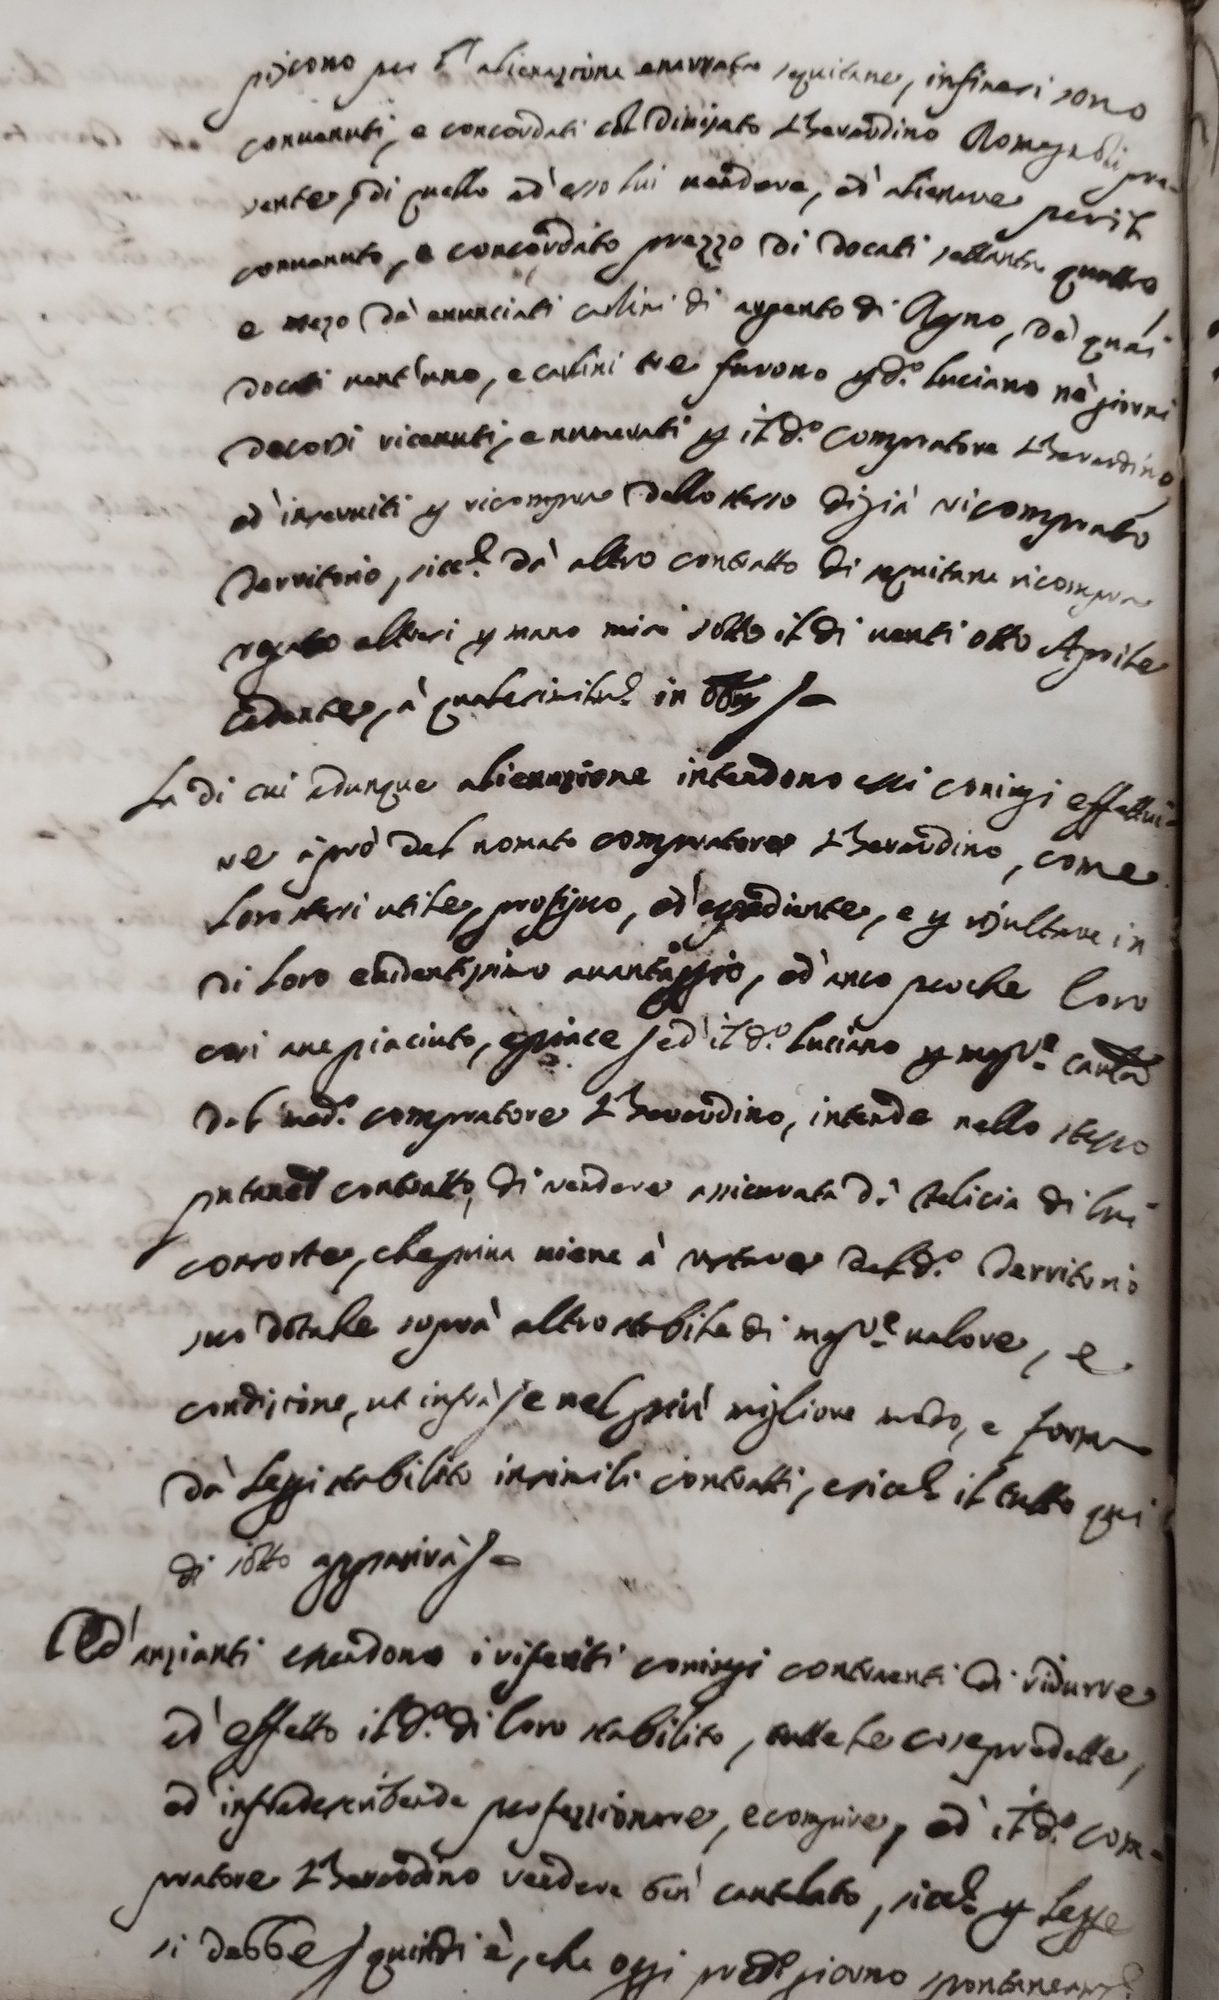 piscono per l'alienazione enarrata seguitane, infinesi sono
conuenuti, e concordati col divisato Berardino Romagnoli pre-
sente, di quello ad' esso lui uendere, ed' alienare per il
conuenuto, e concordato prezzo di docati settanta quattro,
e mezo de enunciati carlini di argento di Regno, de quai
docati uent'uno, e carlini tre furono p d.º Luciano ne giorni
decorsi riceuuti, e numerati p il d.º compratore Berardino,
ed' inseruiti p ricompra dello stesso digià ricomprato
Territorio, sice.º dà altro contratto di seguitane ricompra
rogato altresi p mano mia sotto il di uenti otto Aprile
cadente, à quale in
La di cui adunque alienazione intendono essi coniugi effettua-
re à prò del nomato compratore Berardino, come
loro stessi utile, proficuo, ed' espediente, e p risultare in
di loro euidentissimo auantaggio, ed' anco perche loro
cosi ane piaciuto, e piace / ed' il d.º Luciano p magg.re cautela
del med.º compratore Berardino, intende nello stesso
pntaneo contratto, di rendere assicurata d.ª Felicia di lui
consorte, che priua uiene à restare del d.º Territorio
suo dotale soprà altro stabile di magg.re ualore, e
condizione, ut infrà / e nel più migliore modo, e forma
dà Leggi stabilito in simili contratti, e sice.º il tutto quì
di sotto apparirà / -
Ed' anzianti essendono i riferiti coniugi contraenti di ridurre
ad' effetto il d.º di loro stabilito, tutte le cose predette,
ed' infradescribende perfezzionare, e compire, ed' il d.º com-
pratore Berardino rendere ben cautelato, sice.º p Legge
si debbe / quindi è, che oggi pred.º giorno spontaneam.e